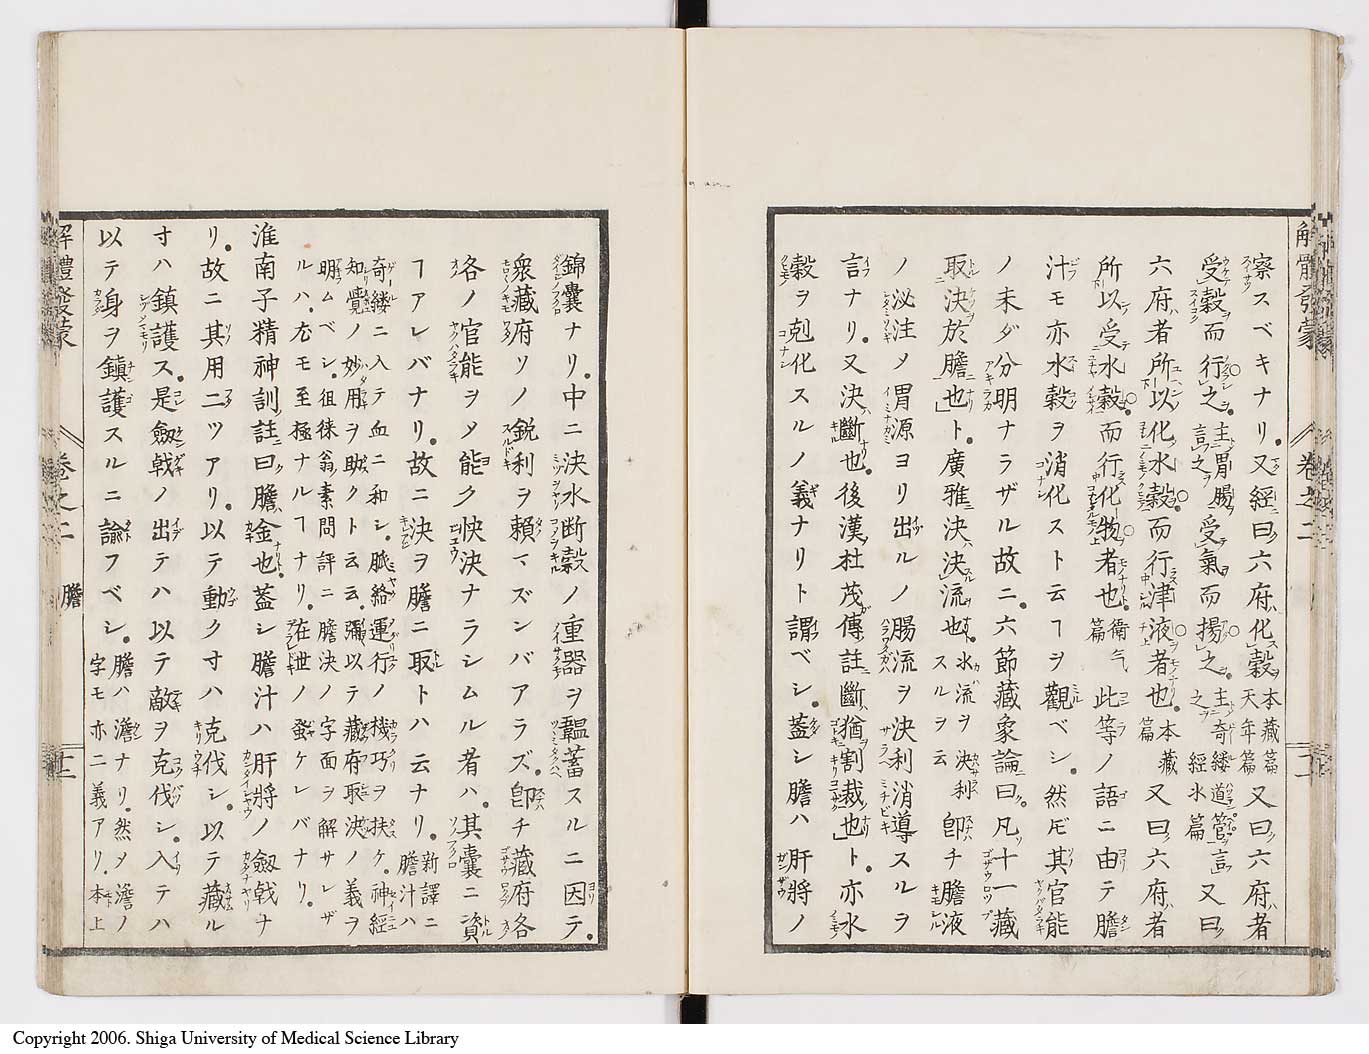 解體發蒙 卷之二 十一
察スベキナリ。又經曰六府化穀 本藏篇 天年篇 又曰六府者
受穀而行之 主胃腸受氣而揚之 主奇縷道管言 經水篇 又曰
六府者所以化水穀而行津液者也 本藏篇 又曰六府者
所以受水穀而行化物者也 衛气篇 此等ノ語ニ由テ膽
汁モ亦水穀ヲ消化スト云ヿヲ觀ベシ。然𪜈其官能
ノ未ダ分明ナラザル故ニ。六節藏象論曰凡十一藏
取決於膽也ト。廣雅決決流也 水流ヲ決利スルヲ云 卽チ膽液
ノ泌注メ胃源ヨリ出ルノ腸流ヲ決利消導スルヲ
言ナリ。又決斷也。後漢杜茂傳註斷猶割裁也ト。亦水
穀ヲ剋化スルノ義ナリト謂ベシ。蓋シ膽ハ肝將ノ
錦囊ナリ。中ニ決水断穀ノ重器ヲ韞蓄スルニ因テ。
衆藏府ソノ鋭利ヲ頼マズンバアラズ。卽チ藏府各
各ノ官能ヲメ能ク快決ナラシムル者ハ。其囊ニ資
ヿアレバナリ。故ニ決ヲ膽ニ取トハ云ナリ。新譯ニ膽汁ハ
奇縷ニ入テ血ニ和シ。脈絡運行ノ機巧ヲ扶ケ。神經
知覺ノ妙用ヲ助クト云云。彌以テ藏府取決ノ義ヲ
明ムベシ。徂徠翁素問評ニ膽決ノ字面ヲ解サレザ
ルハ。尤モ至極ナルヿナリ。在世ノ蚤ケレバナリ。
淮南子精神訓註曰膽金也蓋シ膽汁ハ肝將ノ劔戟ナ
リ。故ニ其用二ツアリ。以テ動クヰハ克伐シ。以テ藏ル
寸ハ鎮護ス。是劔戟ノ出テハ以テ敵ヲ克伐シ。入テハ
以テ身ヲ鎮護スルニ諭フベシ。膽ハ澹ナリ。然ヲ澹ノ字モ亦ニ義アリ。本上
解體發蒙 卷之二 膽 十二
Copyright 2006. Shiga University of Medical Science Library